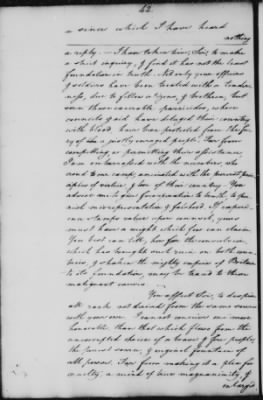 42
a sincere which I have heard
nothing
in reply. — I have taken time, Sir, to make
a strict inquiry, & find it has not the least
foundation in truth. Not only your officers
& soldiers have been treated with a tender-
ness, due to fellow citizens, & brethren, but
even those execrable parricides, whose
counsels & aid have deluged their country
with blood, have been protected from the fury
of a justly enraged people. Far from
compelling or permitting their assistance,
I am embarrassed with the numbers, who
crowd to our camp, animated with the purest prin-
ciples of virtue, & love of their country. You
advise me to give free operation to truth, to
punish misrepresentation & falsehood. If experi-
ence stamps value upon counsels, yours
must have a weight which few can claim.
You best can tell, how far the convulsion,
which has brought such ruin on both coun-
tries, & shaken the mighty empire of Britain
to its foundation, may be traced to these
malignant causes.
You affect Sir, to despise
all rank not derived from the same source
with your own. I cannot conceive one more
honorable, than that which flows from the
uncorrupted choice of a brave & free people,
the purest source, & original fountain of
all power. Far from making it a plea for
cruelty, a mind of true magnanimity, &
enlarged